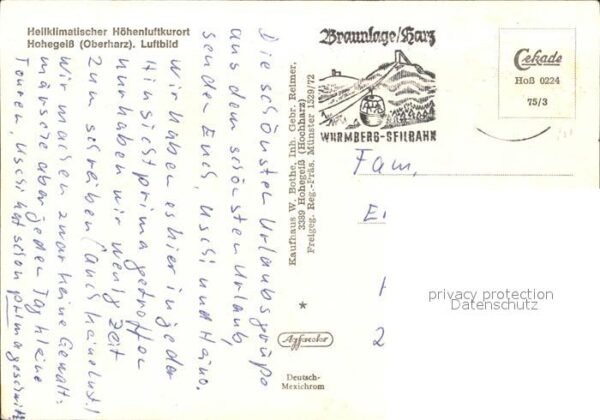 Heilklimatischer Höhenluftkurort
Hohegeiß (Oberharz). Luftbild
Die schönsten Urlaubsgrüße
aus dem schönsten Urlaub,
senden Euch, Uschi und Heino.
Wir haben es hier in jeder
Hinsicht prima getroffen
nur haben wir wenig Zeit
zum schreiben (auch keine Lust)
Wir machen zwar keine Gewalt-
märsche aber jeden Tag kleine
Touren, Uschi hat schon prima
Kaufhaus W. Bothe, Inh. Gebr. Reimer,
3389 Hohegeiß (Hochharz)
Freigeg. Reg.-Präs. Münster 1529/72
Deutsch-
Mexichrom
Braunlage/Harz
WURMBERG-SEILBAHN
Cekade
Hoß 0224
75/3
Fam.
privacy protection
Datenschutz
2